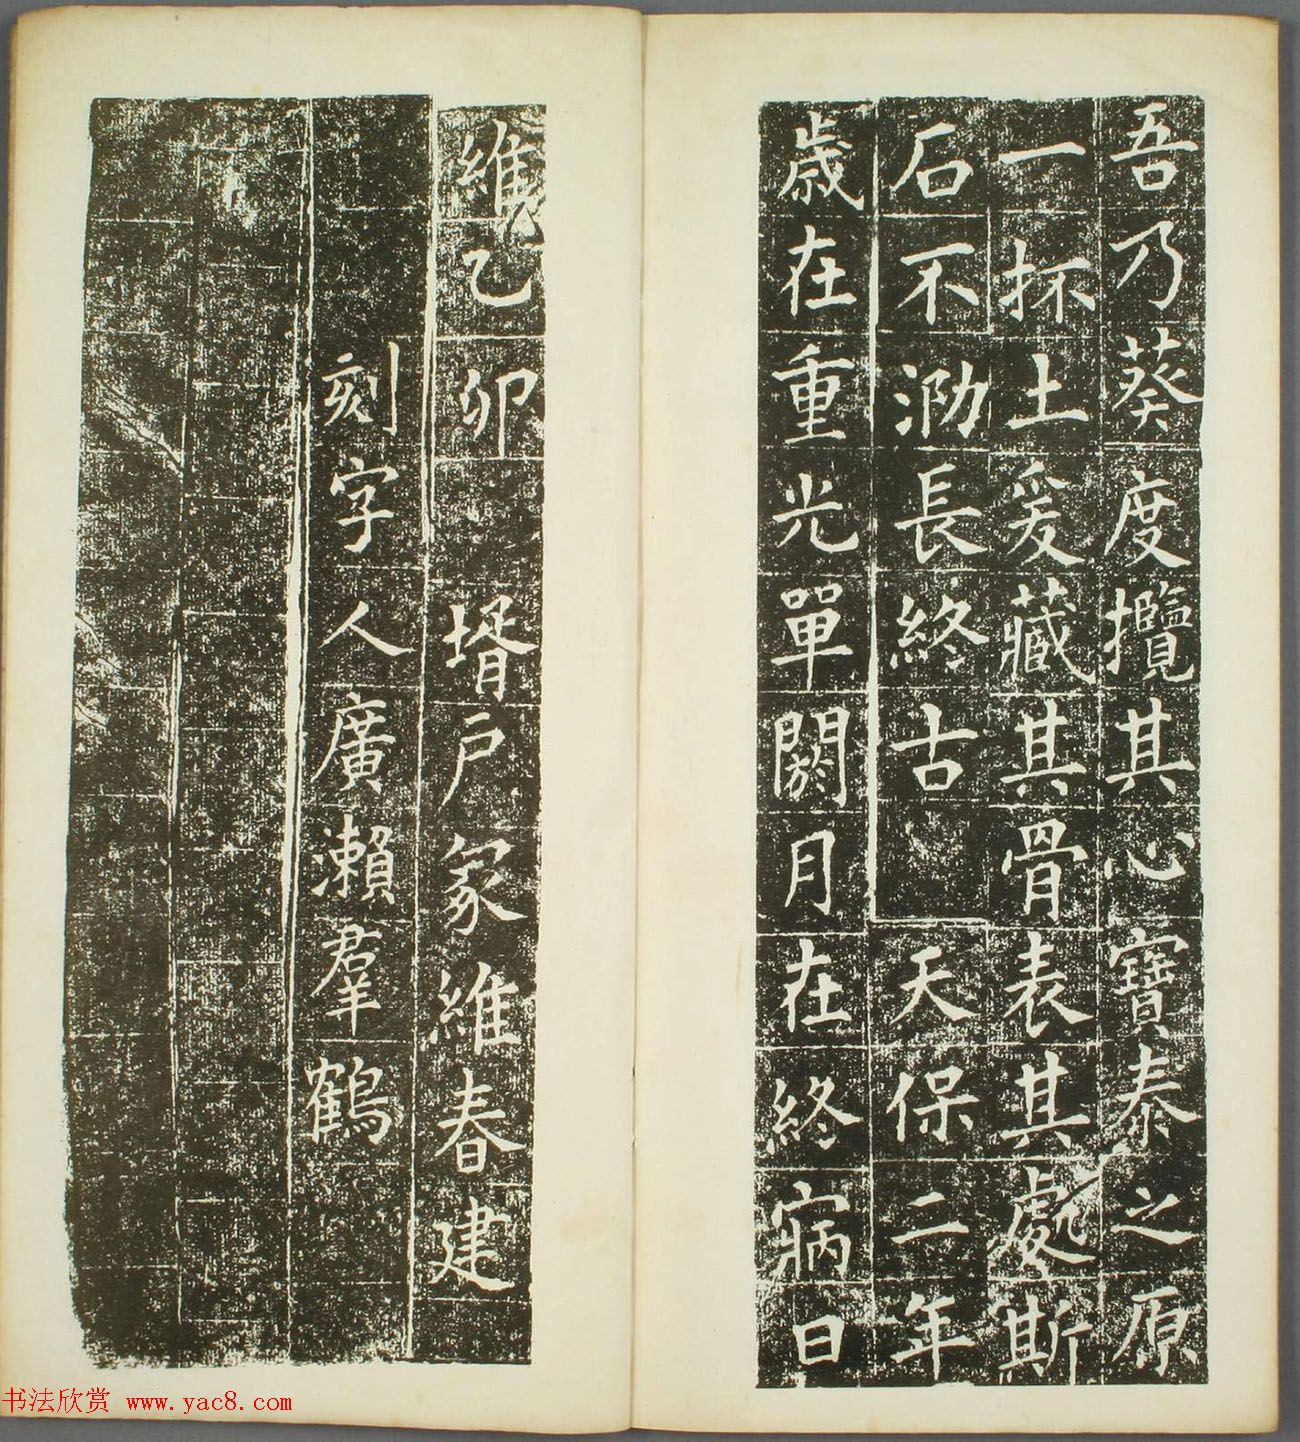 吾乃葵度攬其心寶泰之原
一抔土爰藏其骨表其處斯
石不泐長終古 天保二年
歳在重光單閼月在終寎日
維乙卯 壻戸冢維春建
刻字人廣瀨羣鶴
书法欣赏 www.yac8.com